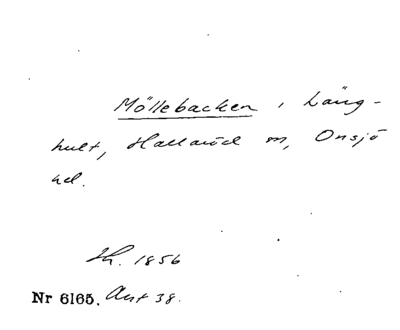 Möllebacken, Läng-
hult, Hallaröd sn, Onsjö
hd.
Hk. 1856
Nr 6165. Ant 38.